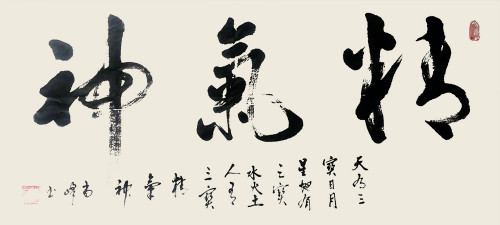 精氣神
天有三
寶日月
星地有
三寶
水火土
人有
三寶
精
氣
神